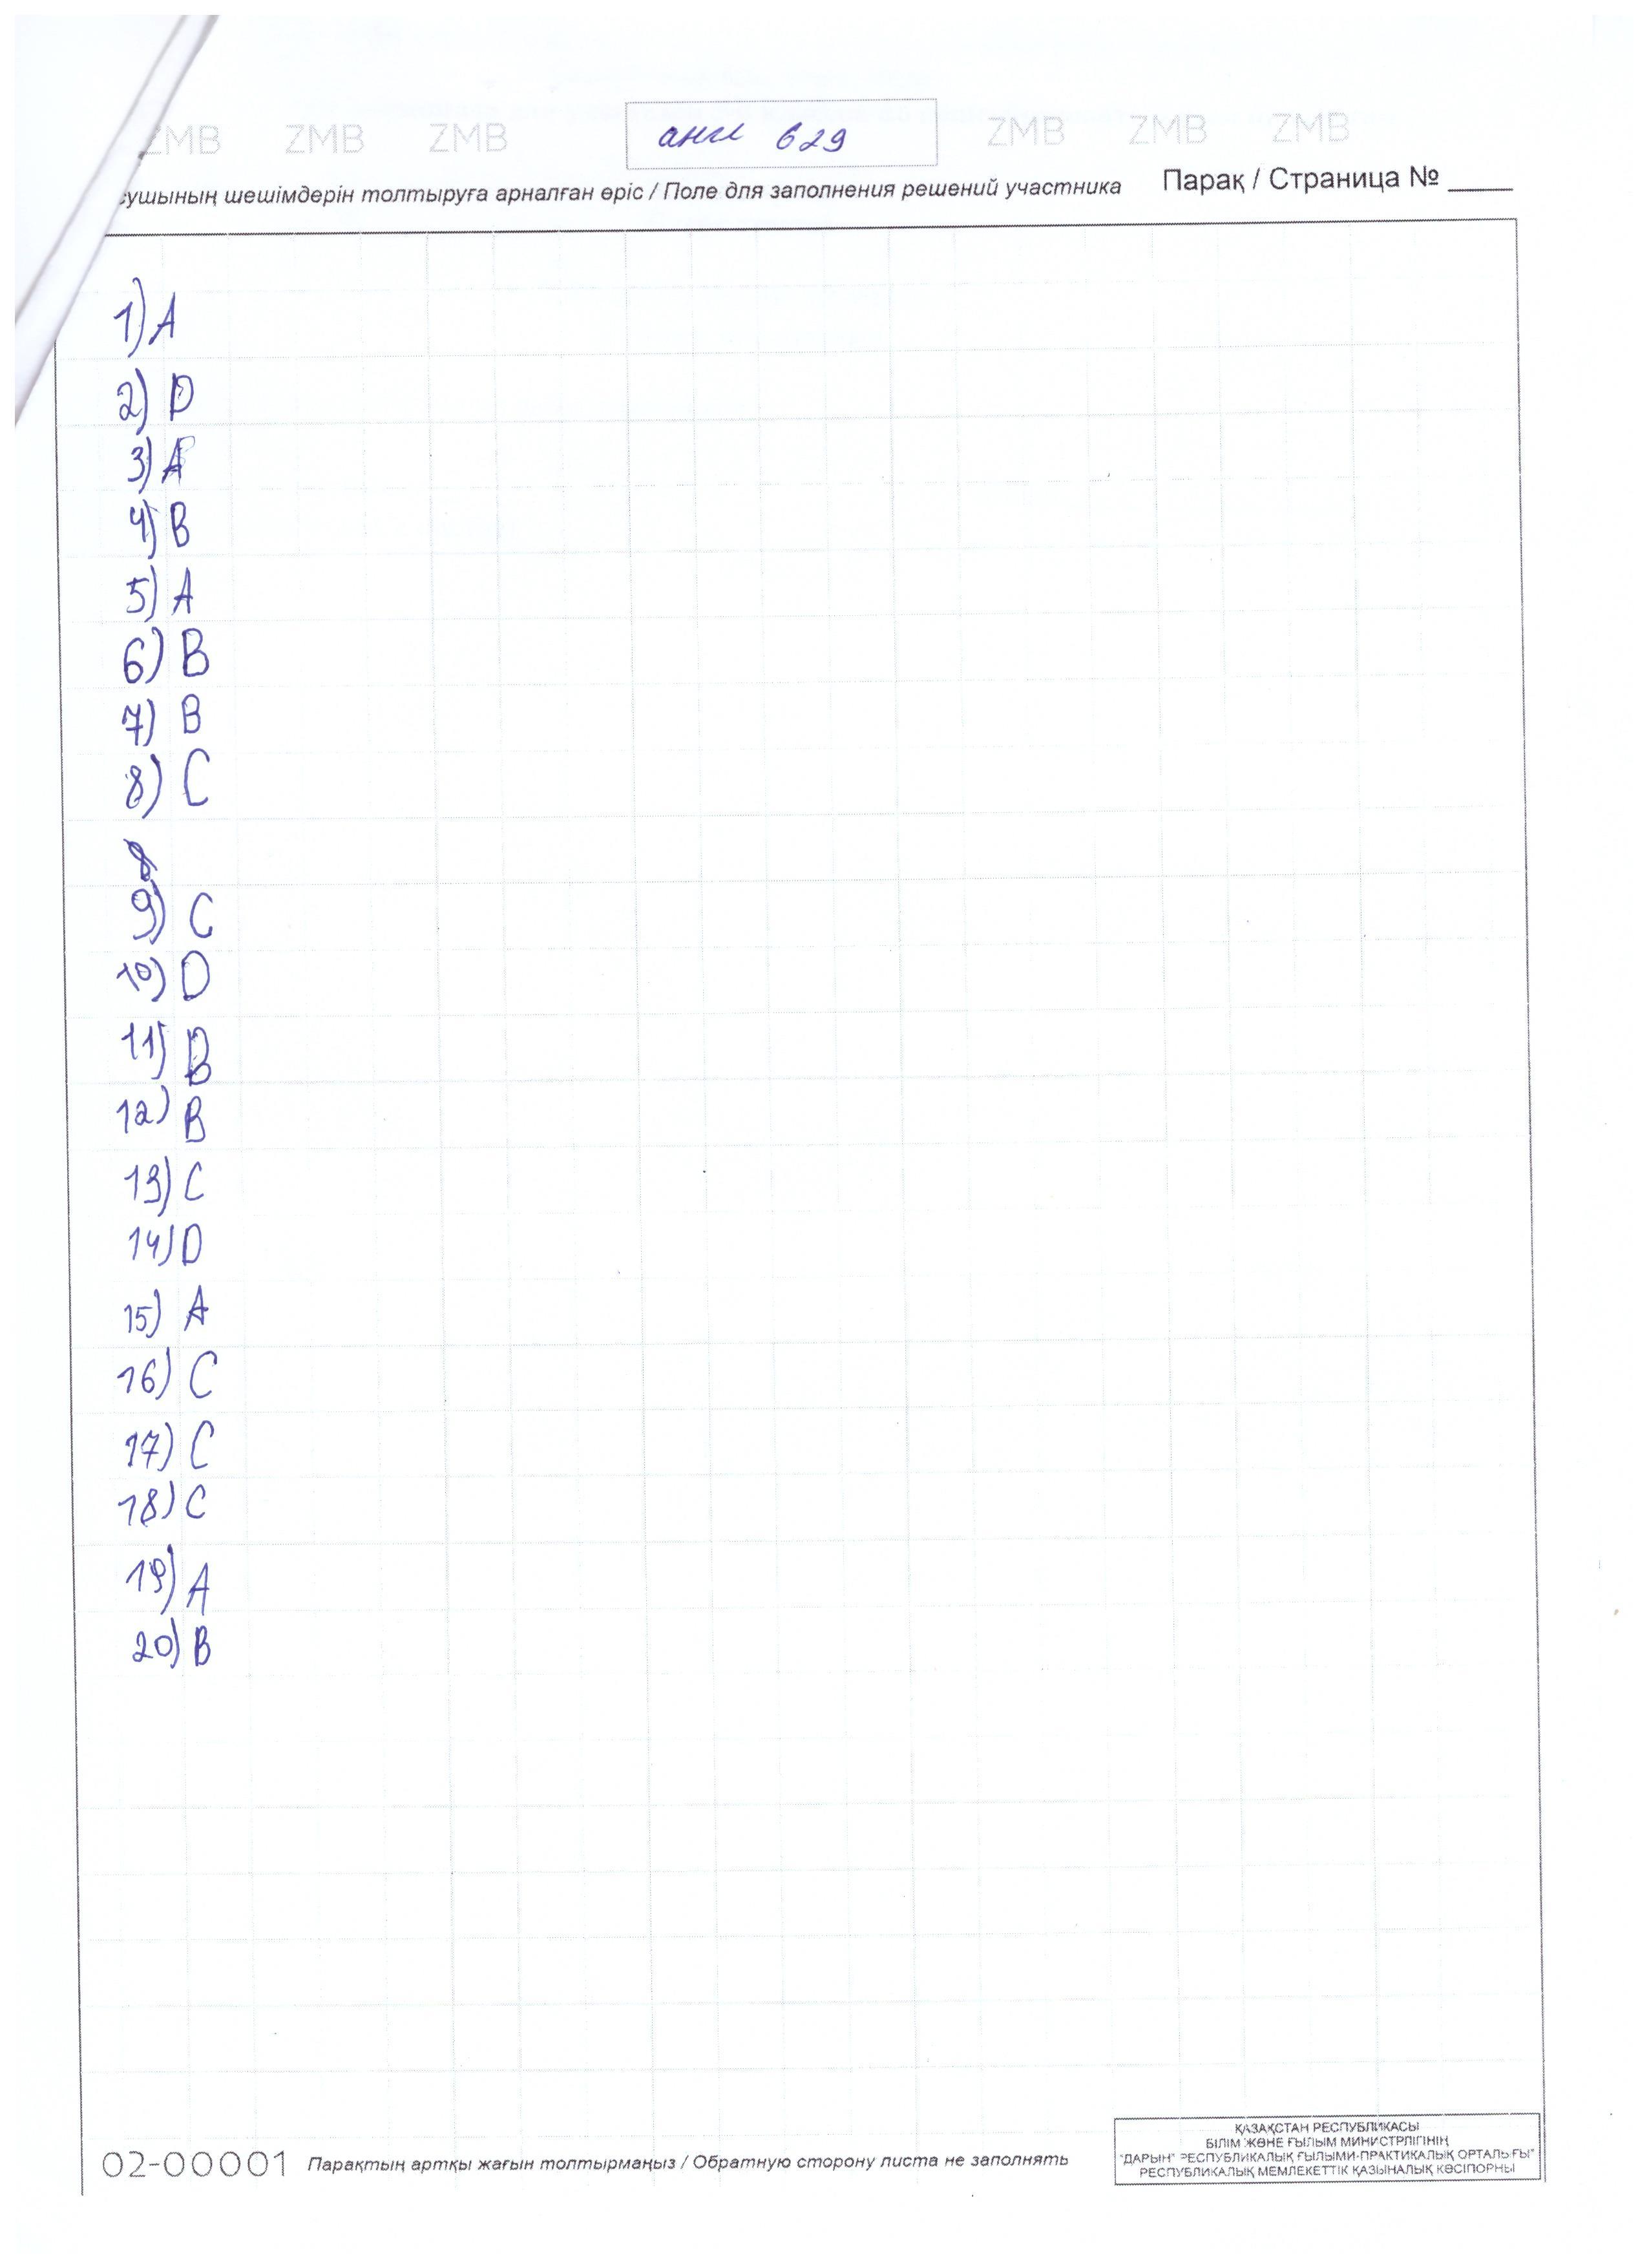 ZMB ZMB ZMB англ 629 ZMB ZMB ZMB
сушының шешімдерін толтыруға арналған өріс / Поле для заполнения решений участника Парақ / Страница № ____
1) A
2) D
3) A
4) B
5) A
6) B
7) B
8) C
9) C
10) D
11) B
12) B
13) C
14) D
15) A
16) C
17) C
18) C
19) A
20) B
02-00001 Парақтың артқы жағын толтырмаңыз / Обратную сторону листа не заполнять
ҚАЗАҚСТАН РЕСПУБЛИКАСЫ
БІЛІМ ЖӘНЕ ҒЫЛЫМ МИНИСТРЛІГІНІҢ
"ДАРЫН" РЕСПУБЛИКАЛЫҚ ҒЫЛЫМИ-ПРАКТИКАЛЫҚ ОРТАЛЫҒЫ"
РЕСПУБЛИКАЛЫҚ МЕМЛЕКЕТТІК ҚАЗЫНАЛЫҚ КӘСІПОРНЫ